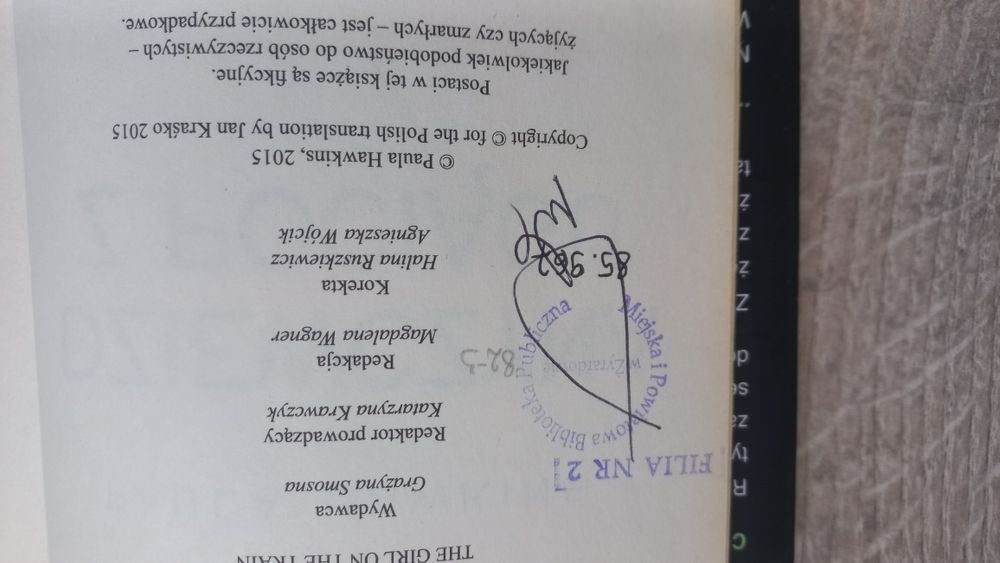 THE GIRL ON THE TRAIN
Wydawca
Grażyna Smosna
Redaktor prowadzący
Katarzyna Krawczyk
Redakcja
Magdalena Wagner
Korekta
Halina Ruszkiewicz
Agnieszka Wójcik
© Paula Hawkins, 2015
Copyright © for the Polish translation by Jan Kraśko 2015
Postaci w tej książce są fikcyjne.
Jakiekolwiek podobieństwo do osób rzeczywistych –
żyjących czy zmarłych – jest całkowicie przypadkowe.
FILIA NR 2
Miejska i Powiatowa Biblioteka Publiczna
w Żyrardowie
82-3